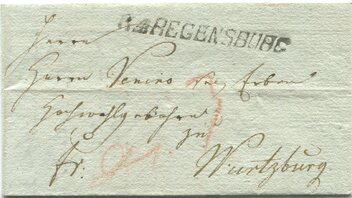 R.4.REGENSBURG
Herrn
Herrn Venino sel. Erben
Hochwohlgebohrn
zu
Fr: Wurtzburg.